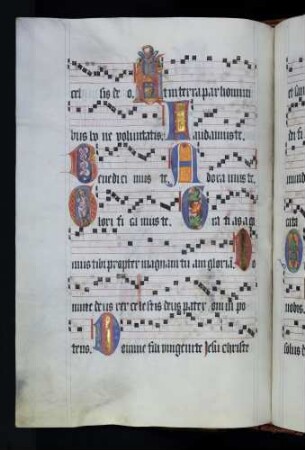 cel sis de o. Et in terra pax homini
bus bo ne voluntatis. Laudamus te.
Benedici mus te. Adora mus te.
Glori fi ca mus te. Gra ti as a gi
mus tibi propter magnam tu am gloriā. D
mine deus rex celestis deus pater om ni po
tens. Domine fili unigenite Jesu christe